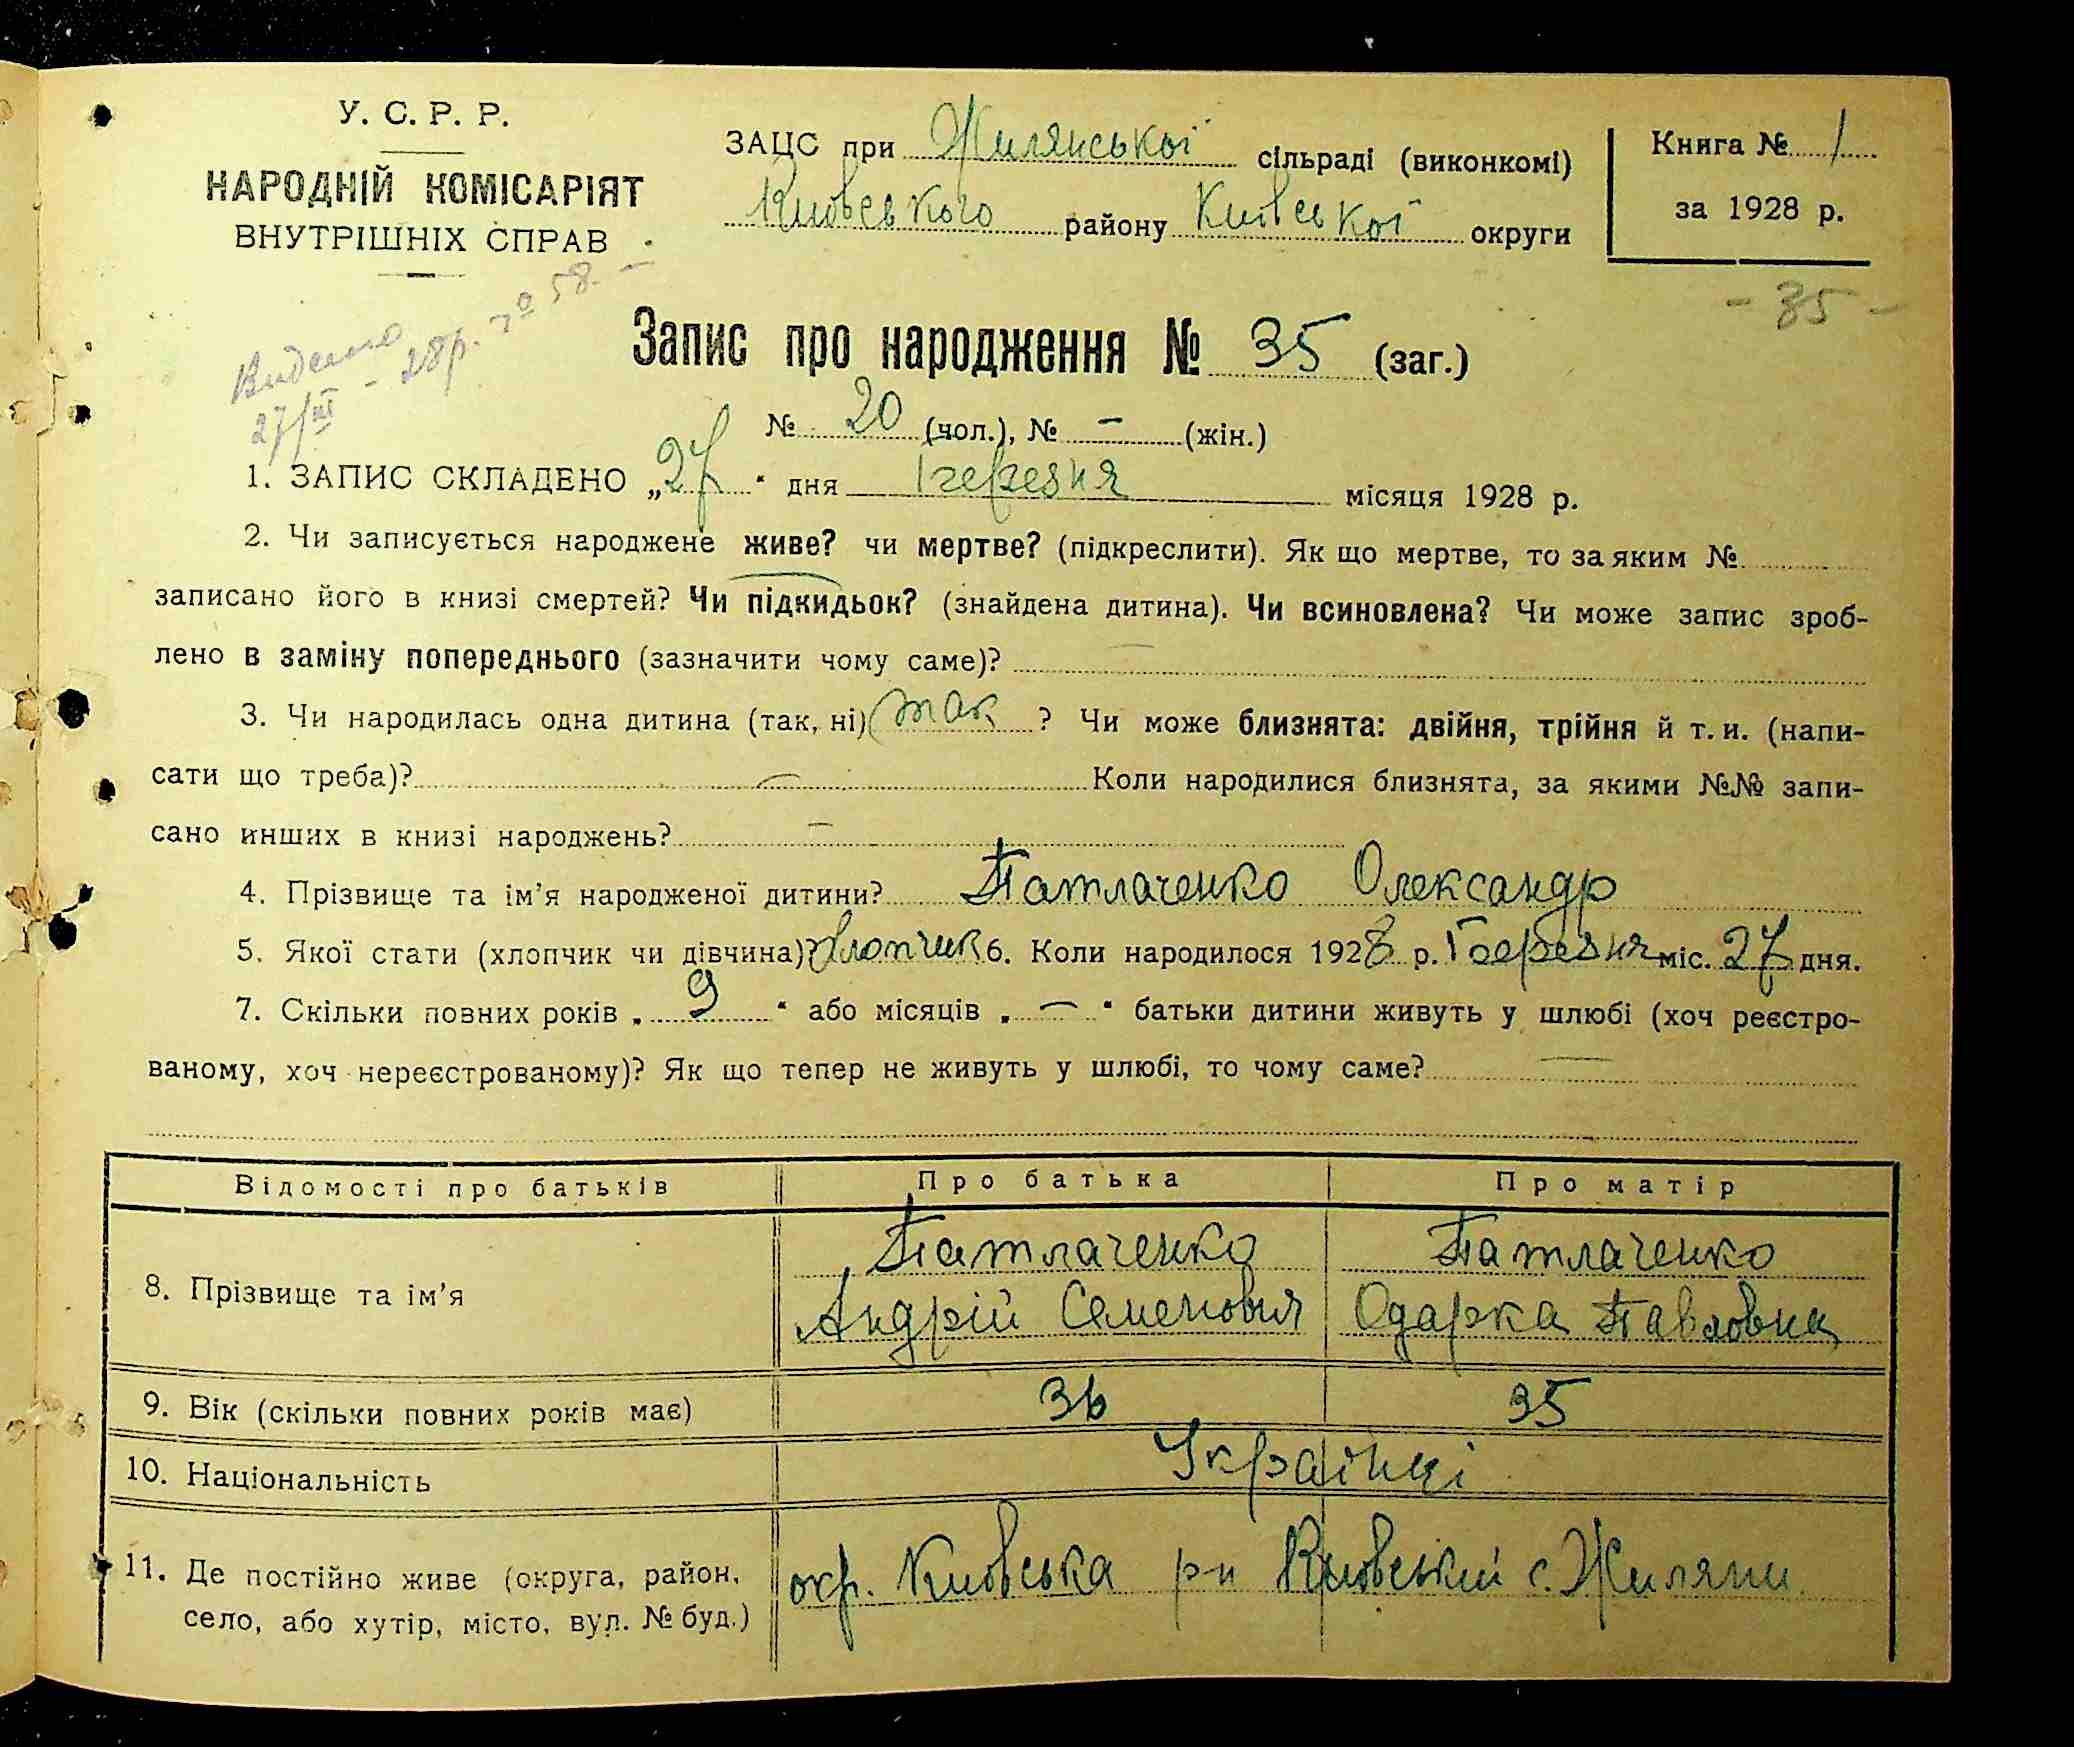 У. С. Р. Р.
НАРОДНІЙ КОМІСАРІЯТ
ВНУТРІШНІХ СПРАВ
ЗАЦС при Жилянської сільраді (виконкомі)
Київського району Київської округи
Книга № 1
за 1928 р.
- 35 -
Видано
27/III - 28 р. 58. -
Запис про народження № 35 (заг.)
№ 20 (чол.), № — (жін.)
1. ЗАПИС СКЛАДЕНО „27“ дня березня місяця 1928 р.
2. Чи записується народжене живе? чи мертве? (підкреслити). Як що мертве, то за яким №
записано його в книзі смертей? Чи підкидьок? (знайдена дитина). Чи всиновлена? Чи може запис зроб-
лено в заміну попереднього (зазначити чому саме)? —
3. Чи народилась одна дитина (так, ні) так ? Чи може близнята: двійня, трійня й т. и. (напи-
сати що треба)? — Коли народилися близнята, за якими №№ запи-
сано инших в книзі народжень? —
4. Прізвище та ім'я народженої дитини? Патлаченко Олександр
5. Якої стати (хлопчик чи дівчина)? Хлопчик 6. Коли народилося 1928 р. березня міс. 27 дня.
7. Скільки повних років „ 9 “ або місяців „ — “ батьки дитини живуть у шлюбі (хоч реєстро-
ваному, хоч нереєстрованому)? Як що тепер не живуть у шлюбі, то чому саме? —
Відомості про батьків Про батька Про матір
8. Прізвище та ім'я Патлаченко Патлаченко
Андрій Семенович Одарка Павловна
9. Вік (скільки повних років має) 36 35
10. Національність Українці
11. Де постійно живе (округа, район,
село, або хутір, місто, вул. № буд.)
окр. Київська рн Київський с. Жиляни